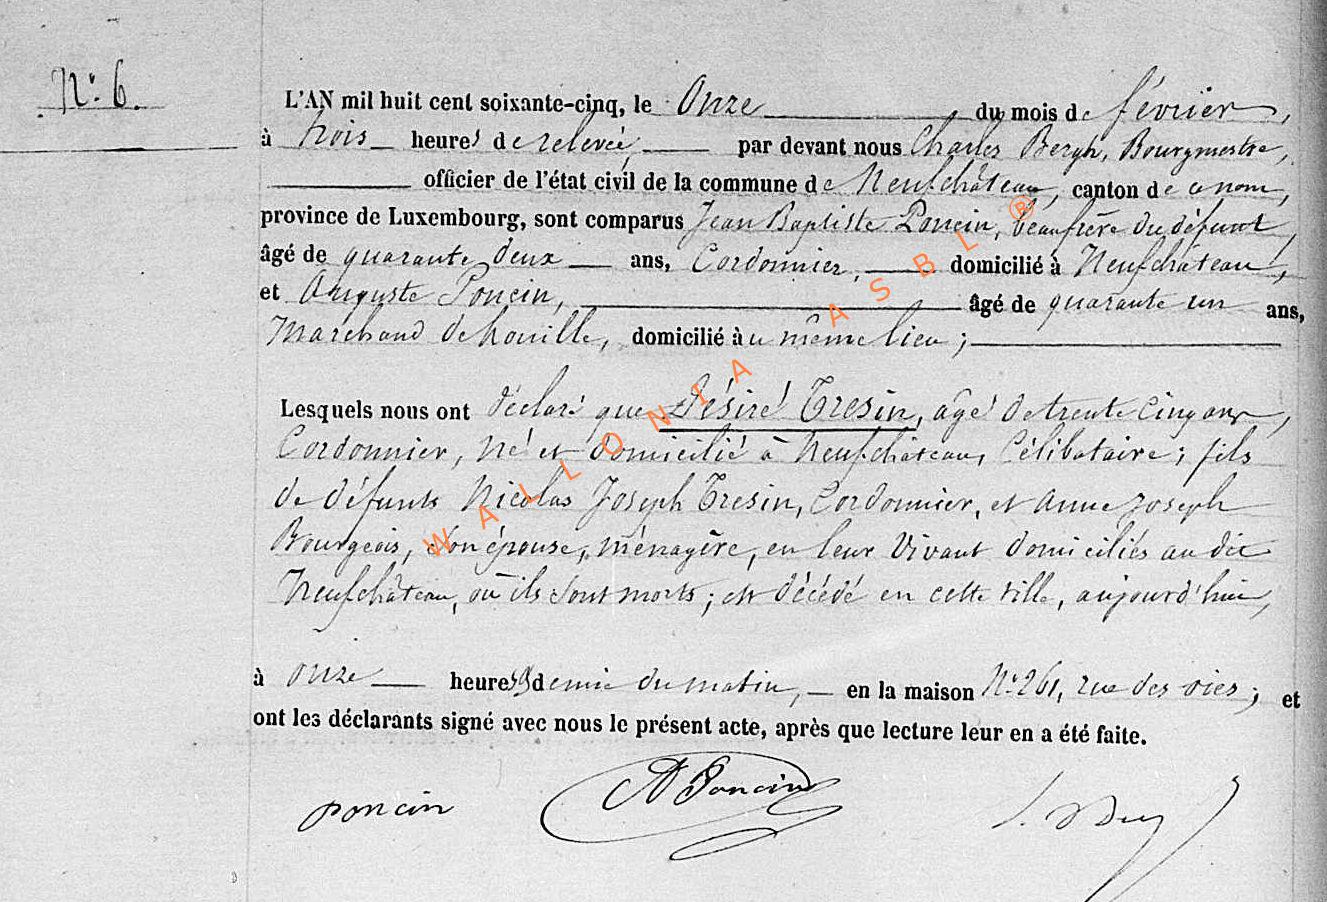 N° 6.
L'AN mil huit cent soixante-cinq, le Onze du mois de février,
à trois heures de relevée, par devant nous Charles Bergh, Bourgmestre,
officier de l'état civil de la commune de Neufchâteau, canton de ce nom,
province de Luxembourg, sont comparus Jean Baptiste Poncin, beaufrère du défunt,
âgé de quarante deux ans, Cordonnier, domicilié à Neufchâteau,
et Auguste Poncin, âgé de quarante un ans,
Marchand de houille, domicilié au même lieu ;
Lesquels nous ont déclaré que Désiré Tresin, agé de trente cinq ans,
Cordonnier, né et domicilié à Neufchâteau, Célibataire ; fils
de défunts Nicolas Joseph Tresin, Cordonnier, et Anne Joseph
Bourgeois, son épouse, ménagère, en leur vivant domiciliés au dit
Neufchâteau, où ils sont morts ; est décédé en cette ville, aujourd'hui,
à onze heures & demie du matin, en la maison N° 261, rue des oies ; et
ont les déclarants signé avec nous le présent acte, après que lecture leur en a été faite.
poncin A Poncin
WALLONIA ASBL ®